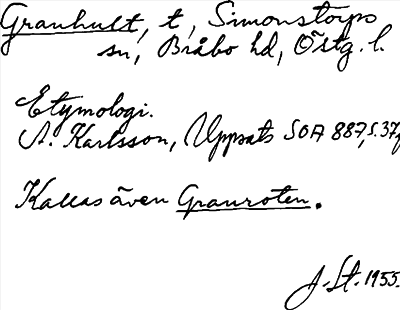 Granhult, t, Simonstorps
sn, Bråbo hd, Östg. l.
Etymologi.
A. Karlsson, Uppsats SOA 887, s. 37f
Kallas även Granroten.
J. St. 1955.